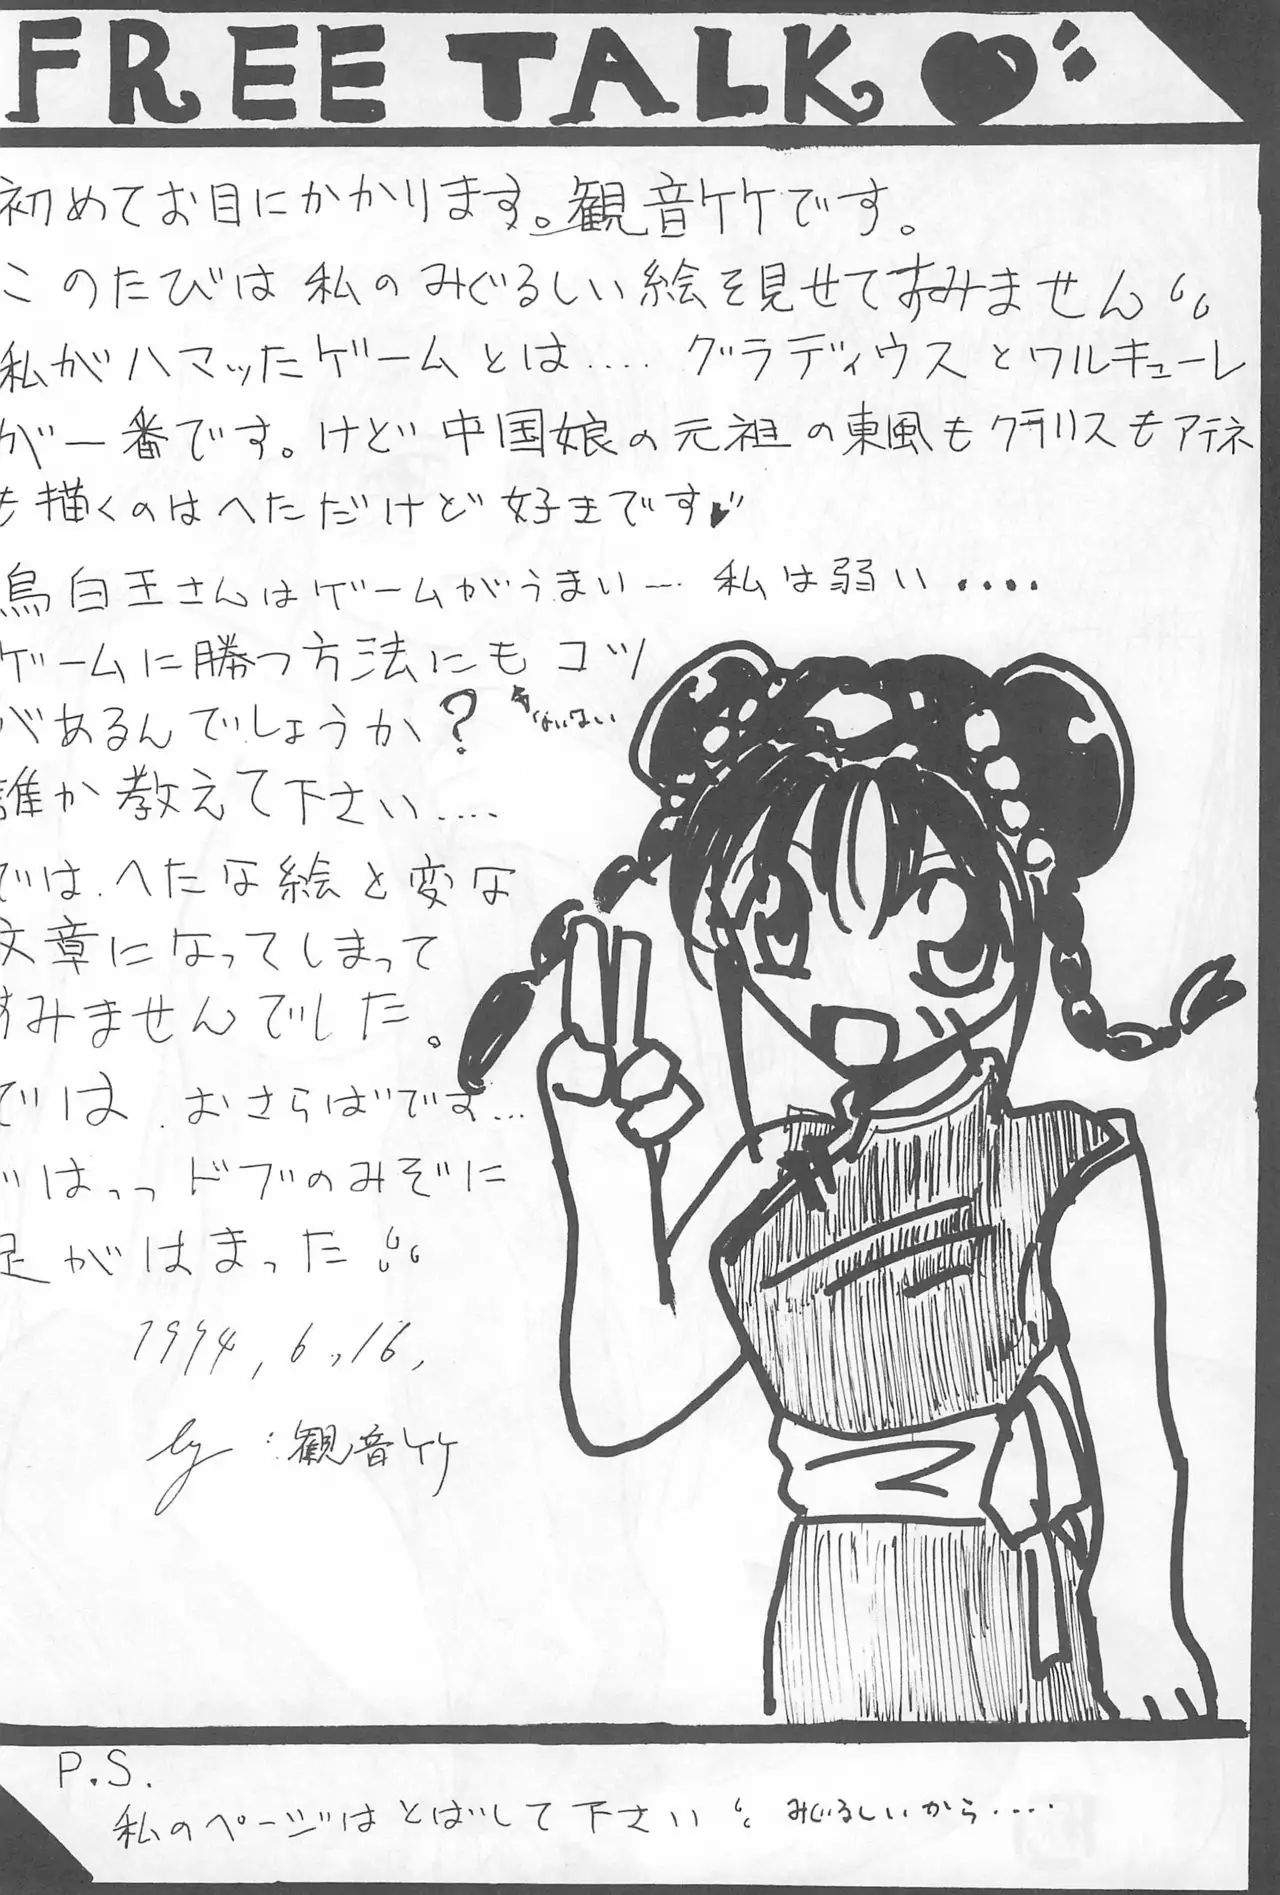 FREE TALK
初めてお目にかかります。観音竹です。
このたびは私のみぐるしい絵を見せてすみません
私がハマッたゲームとは.... グラディウスとワルキューレ
が一番です。けど中国娘の元祖の東風もクラリスもアテネ
も描くのはへただけど好きです
烏白王さんはゲームがうまい… 私は弱い....
ゲームに勝つ方法にもコツ
があるんでしょうか?
誰か教えて下さい....
では、へたな絵と変な
文章になってしまって
すみませんでした。
では、おさらばです...
はっっドブのみぞに
足がはまった
1994,6,16,
by:観音竹
P.S.
私のページはとばして下さい みぐるしいから....